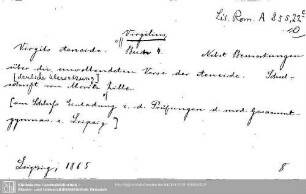 Lit. Rom. A 835,22c
10
Vergilius
Virgils Aeneide. Buch 4. Nebst Bemerkungen
über die unvollendeten Verse der Aeneide. Schul-
[deutsche Übersetzung]
schrift von Moritz Zille
[am Schluß Einladung z. d. Prüfungen d. mod. Gesammt-
gymnas. z. Leipzig]
Leipzig, 1865
8
Sächsische Landesbibliothek -
Staats- und Universitätsbibliothek Dresden